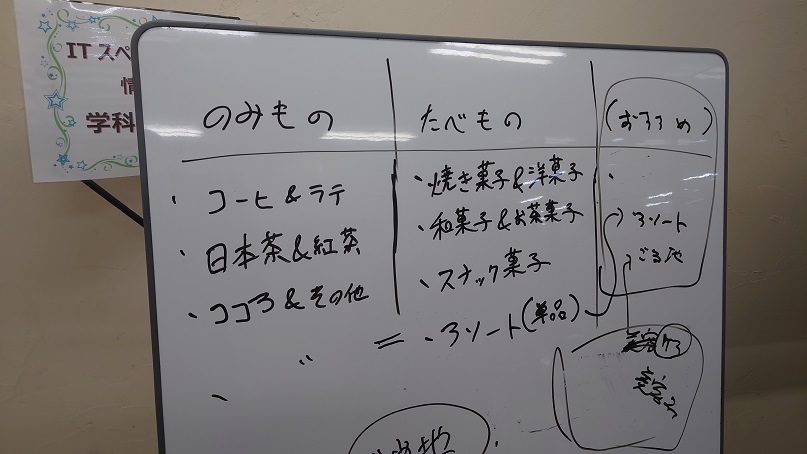 ITスペ
情
学科
のみもの たべもの (おすすめ)
・コーヒ&ラテ ・焼き菓子&洋菓子 ・
・日本茶&紅茶 ・和菓子&お茶菓子
・ココア&その他 ・スナック菓子
〃 = ・アソート(単品)
アソート
・